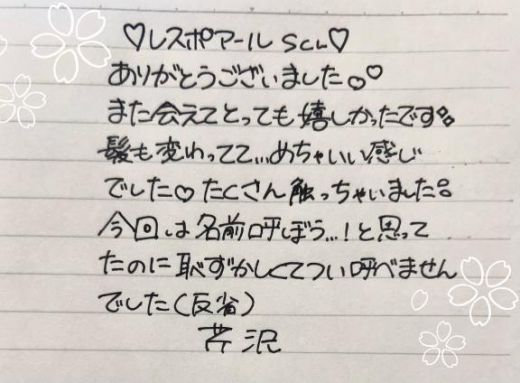 ♡レスポアール SCL♡
ありがとうございました｡♡
また会えてとっても嬉しかったです
髪も変わってて...めちゃいい感じ
でした♡たくさん触っちゃいました
今回は名前呼ぼう...!と思って
たのに恥ずかしくてつい呼べません
でした(反省)
芹沢